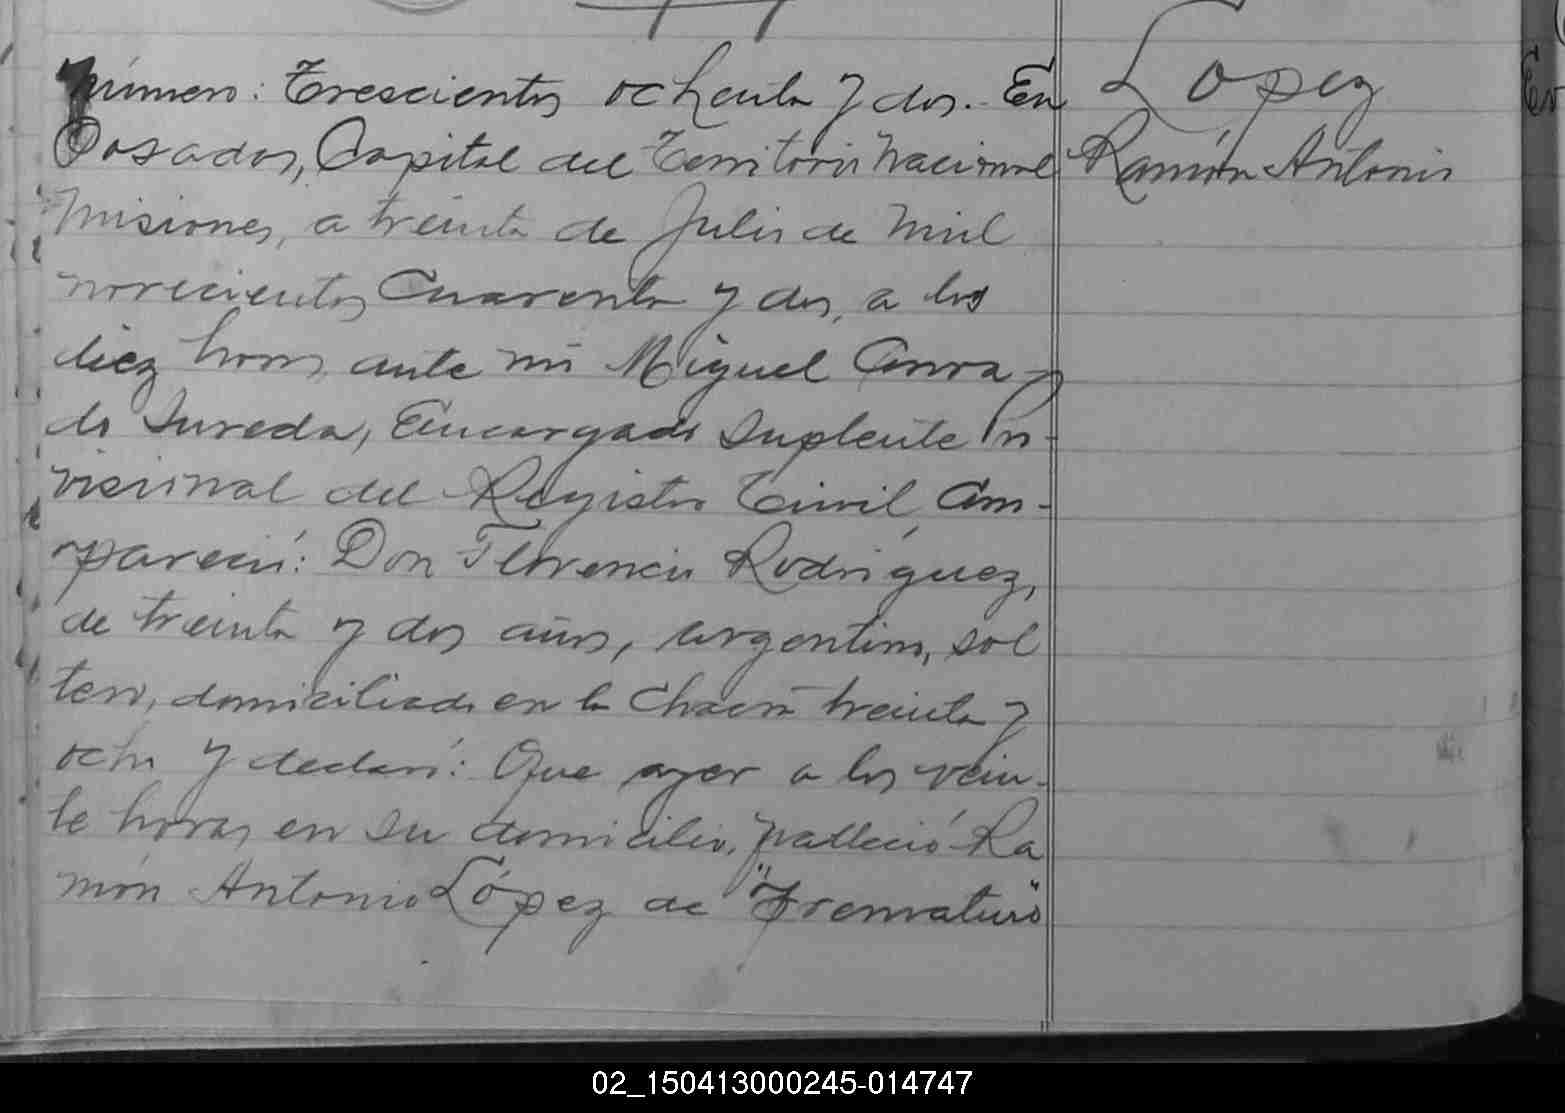 Número: Trescientos ochenta y dos.- En
Posadas, Capital del Territorio Nacional
Misiones, a treinta de Julio de mil
novecientos Cuarenta y dos, a las
diez horas, ante mi Miguel Conra-
do Sureda, Encargado Suplente Pro-
visional del Registro Civil, Com-
pareció: Don Florencio Rodríguez,
de treinta y dos años, argentino, sol
tero, domiciliado en la Chacra treinta y
ocho y declaró: Que ayer a las vein-
te horas, en su domicilio, falleció Ra
món Antonio López de "Prematuro"
López
Ramón Antonio
02_150413000245-014747